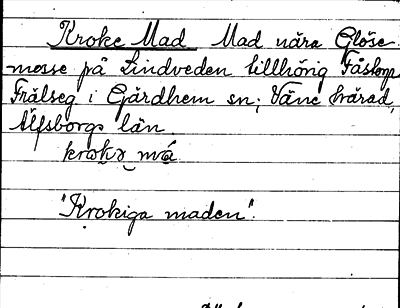 Kroke Mad Mad nära Glöse
mosse på Lindveden tillhörig Fåstorp
Frälseg i Gärdhem sn; Väne härad,
Älfsborgs län.
"Krokiga maden".